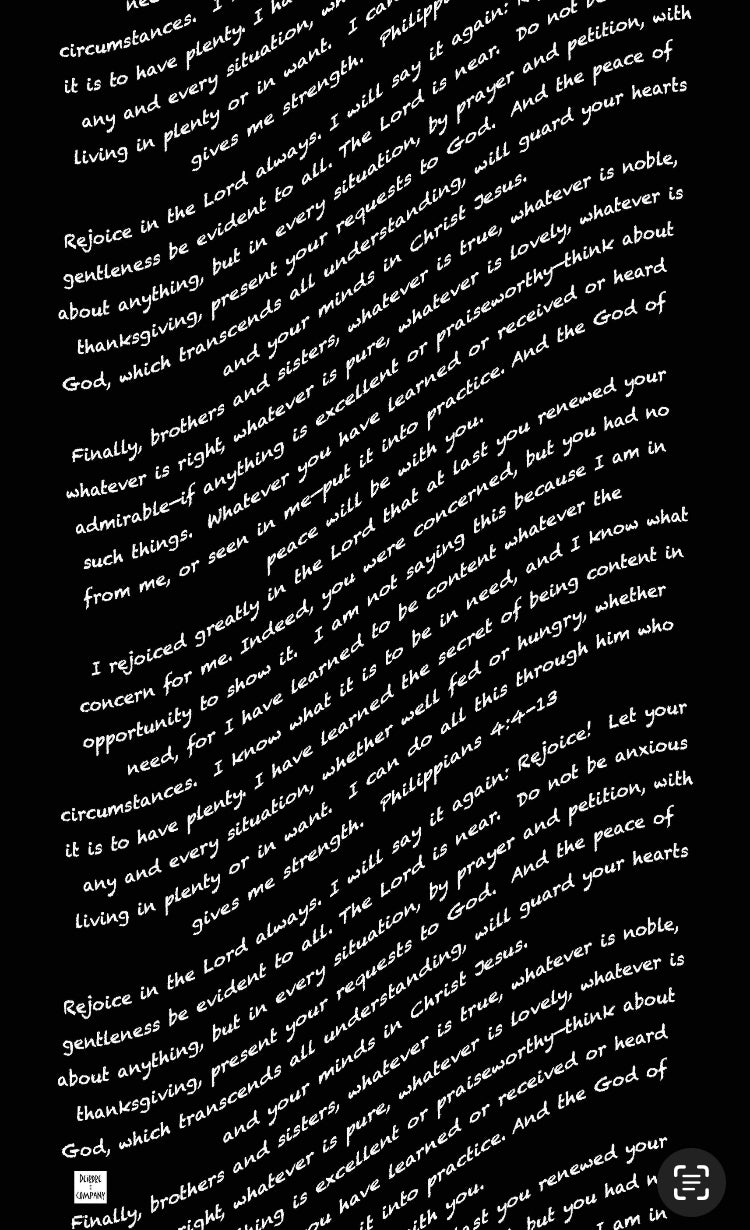 need
circumstances. I
it is to have plenty. I ha
any and every situation, wh
living in plenty or in want. I can
gives me strength. Philipp
Rejoice in the Lord always. I will say it again: R
gentleness be evident to all. The Lord is near. Do not b
about anything, but in every situation, by prayer and petition, with
thanksgiving, present your requests to God. And the peace of
God, which transcends all understanding, will guard your hearts
and your minds in Christ Jesus.
Finally, brothers and sisters, whatever is true, whatever is noble,
whatever is right, whatever is pure, whatever is lovely, whatever is
admirable—if anything is excellent or praiseworthy—think about
such things. Whatever you have learned or received or heard
from me, or seen in me—put it into practice. And the God of
peace will be with you.
I rejoiced greatly in the Lord that at last you renewed your
concern for me. Indeed, you were concerned, but you had no
opportunity to show it. I am not saying this because I am in
need, for I have learned to be content whatever the
circumstances. I know what it is to be in need, and I know what
it is to have plenty. I have learned the secret of being content in
any and every situation, whether well fed or hungry, whether
living in plenty or in want. I can do all this through him who
gives me strength. Philippians 4:4-13
Rejoice in the Lord always. I will say it again: Rejoice! Let your
gentleness be evident to all. The Lord is near. Do not be anxious
about anything, but in every situation, by prayer and petition, with
thanksgiving, present your requests to God. And the peace of
God, which transcends all understanding, will guard your hearts
and your minds in Christ Jesus.
Finally, brothers and sisters, whatever is true, whatever is noble,
right, whatever is pure, whatever is lovely, whatever is
thing is excellent or praiseworthy—think about
ou have learned or received or heard
t into practice. And the God of
ith you.
ast you renewed your
but you had n
I am in
DEIBEL
& COMPANY